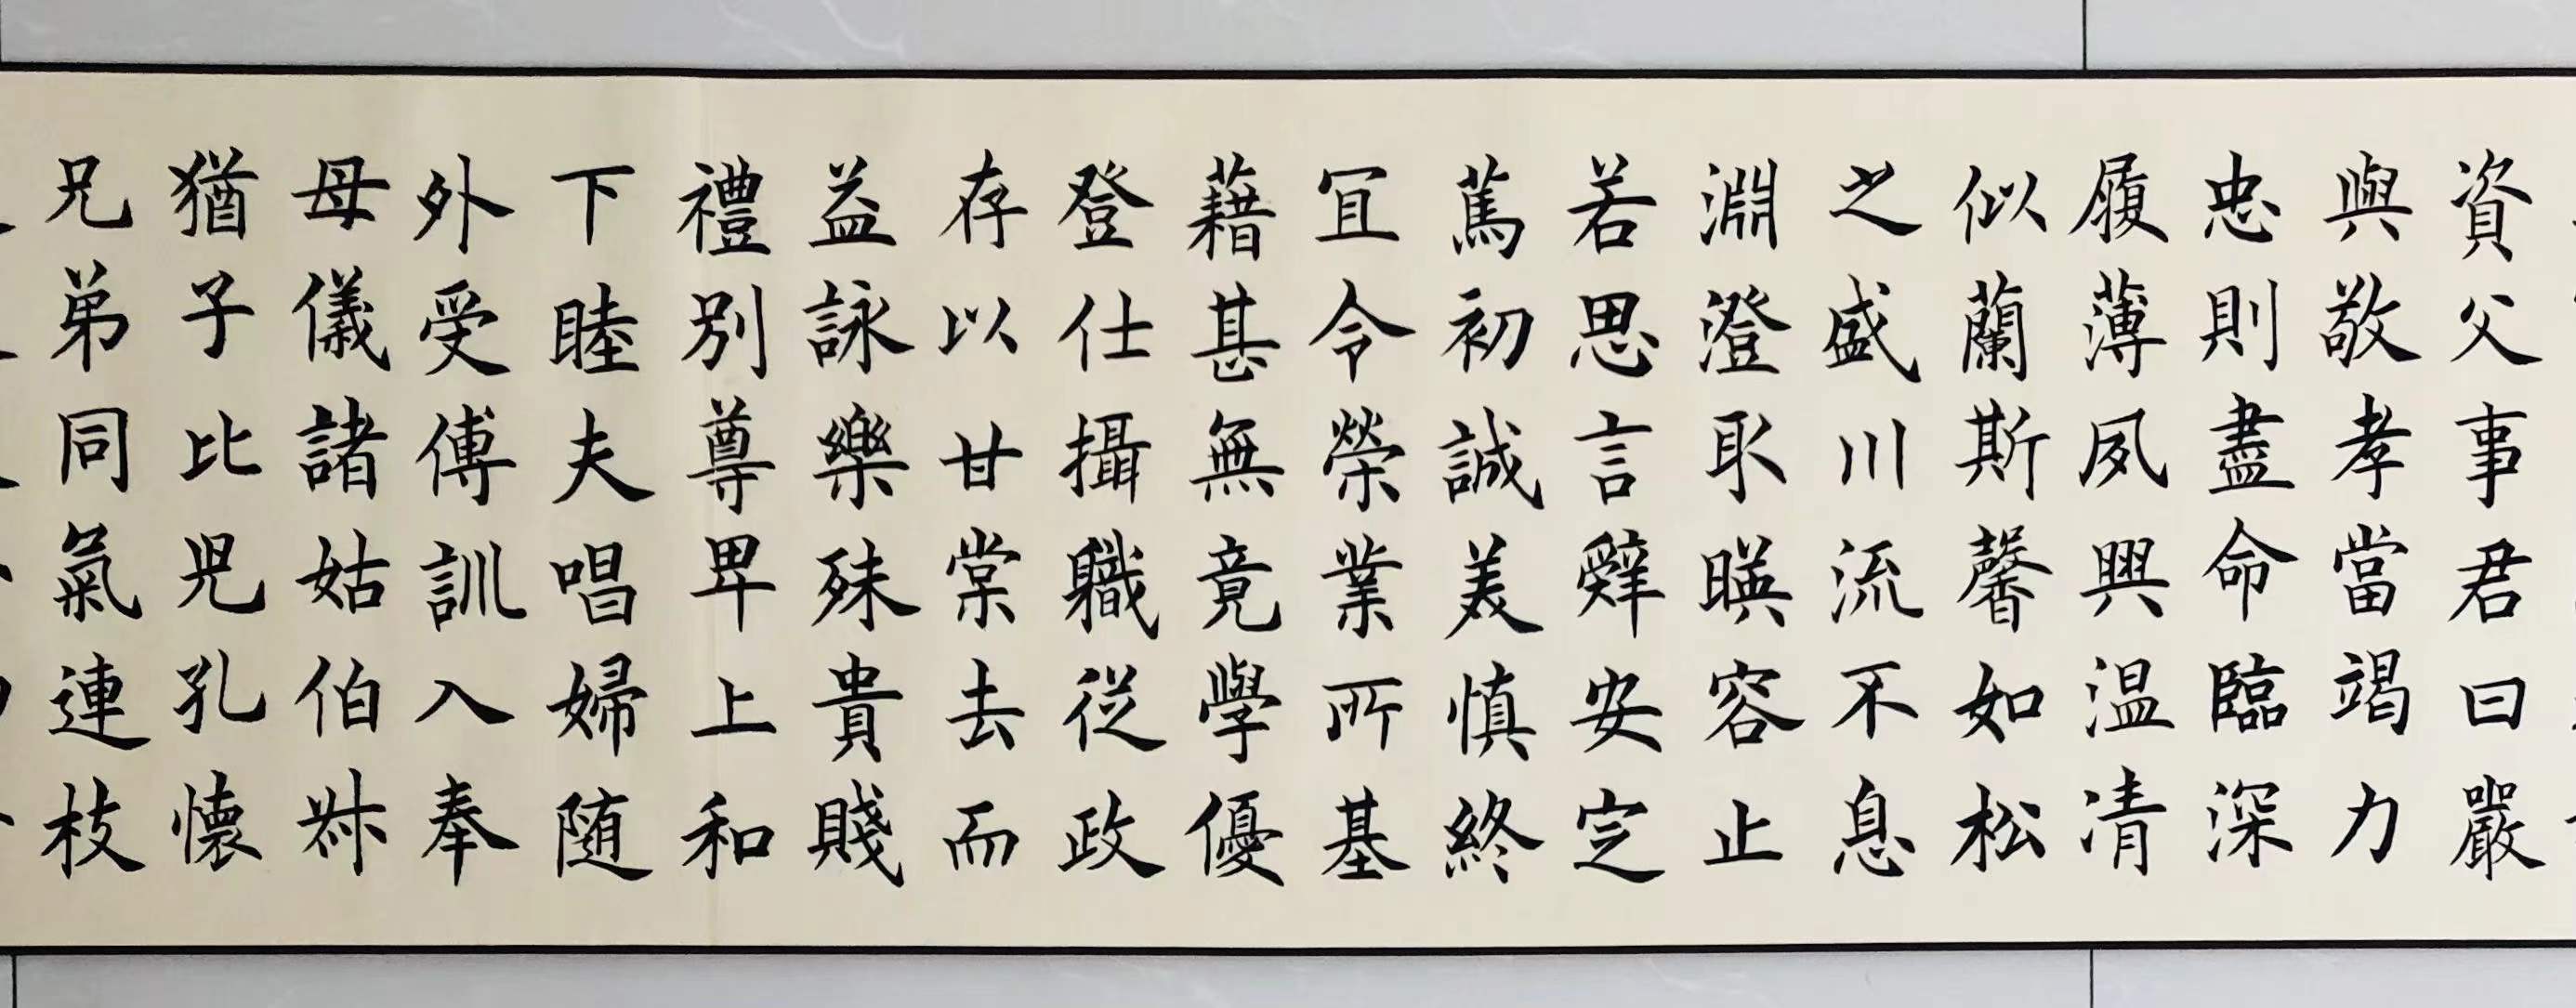 資父事君曰嚴
與敬孝當竭力
忠則盡命臨深
履薄夙興温凊
似蘭斯馨如松
之盛川流不息
淵澄取暎容止
若思言辭安定
篤初誠美慎終
宜令榮業所基
藉甚無竟學優
登仕攝職從政
存以甘棠去而
益詠樂殊貴賤
禮別尊卑上和
下睦夫唱婦随
外受傅訓入奉
母儀諸姑伯叔
猶子比兒孔懐
兄弟同氣連枝